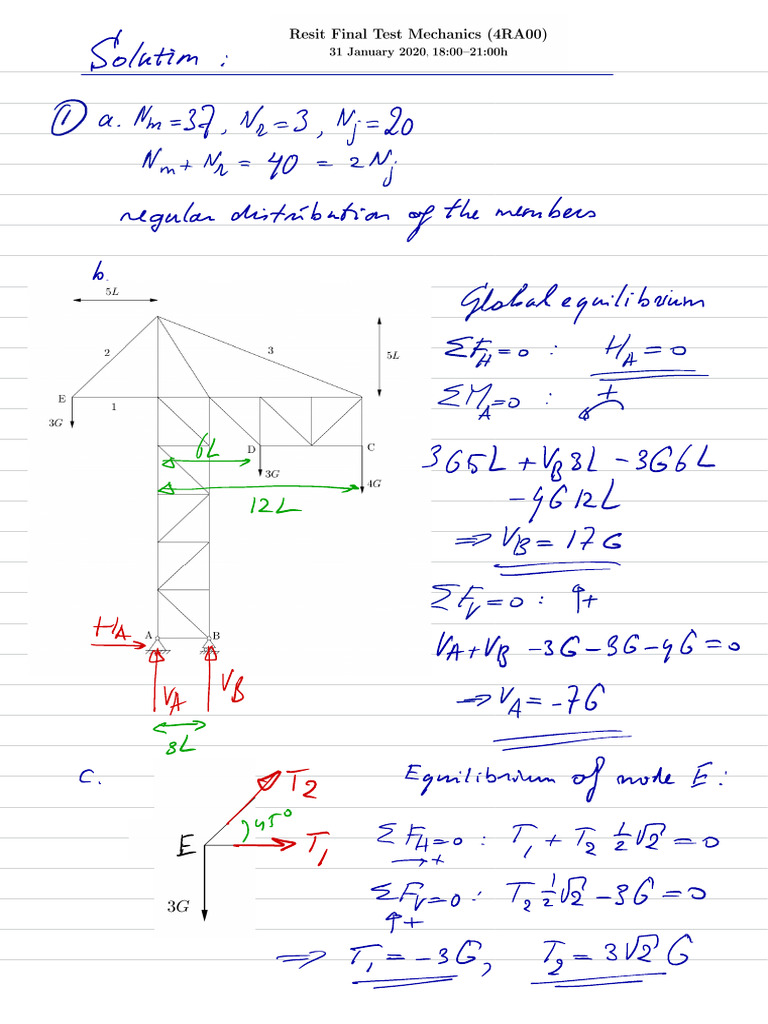 Resit Final Test Mechanics (4RA00)
31 January 2020, 18:00–21:00h
Solution :
① a. Nm = 37, Nr = 3, Nj = 20
Nm + Nr = 40 = 2Nj
regular distribution of the members
b.
5L
2
3
5L
E
1
3G
6L
D
C
3G
4G
12L
HA
A
B
VA
VB
8L
Global equilibrium
ΣFH=0 : HA = 0
ΣMA=0 : +
3G5L + VB 3L – 3G6L
– 4G 12L
⇒ VB = 17G
ΣFV=0 : ↑+
VA + VB – 3G – 3G – 4G = 0
⇒ VA = –7G
c.
T2
45°
E
T1
3G
Equilibrium of node E :
ΣFH=0 : T1 + T2 ½√2 = 0
→+
ΣFV=0 : T2 ½√2 – 3G = 0
↑+
⇒ T1 = –3G, T2 = 3√2 G